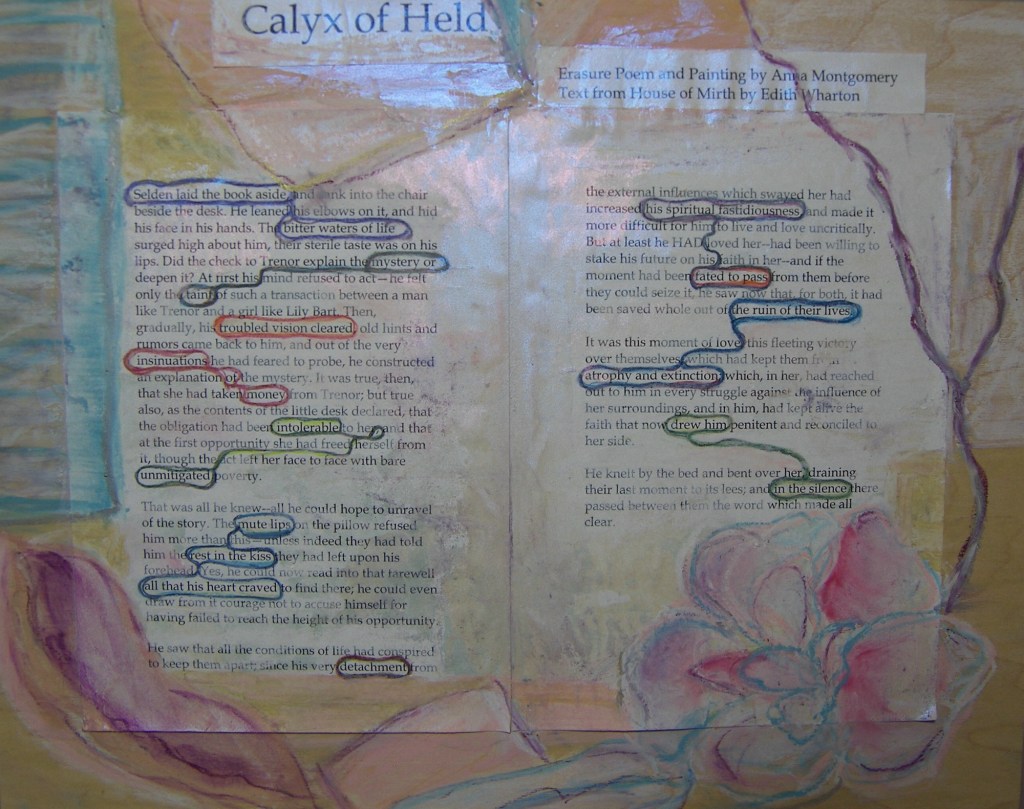 Calyx of Held
Erasure Poem and Painting by Anna Montgomery
Text from House of Mirth by Edith Wharton
Selden laid the book aside, and sank into the chair
beside the desk. He leaned his elbows on it, and hid
his face in his hands. The bitter waters of life
surged high about him, their sterile taste was on his
lips. Did the check to Trenor explain the mystery or
deepen it? At first his mind refused to act—he felt
only the taint of such a transaction between a man
like Trenor and a girl like Lily Bart. Then,
gradually, his troubled vision cleared, old hints and
rumors came back to him, and out of the very
insinuations he had feared to probe, he constructed
an explanation of the mystery. It was true, then,
that she had taken money from Trenor; but true
also, as the contents of the little desk declared, that
the obligation had been intolerable to her, and that
at the first opportunity she had freed herself from
it, though the act left her face to face with bare
unmitigated poverty.
That was all he knew--all he could hope to unravel
of the story. The mute lips on the pillow refused
him more than this—unless indeed they had told
him the rest in the kiss they had left upon his
forehead. Yes, he could now read into that farewell
all that his heart craved to find there; he could even
draw from it courage not to accuse himself for
having failed to reach the height of his opportunity.
He saw that all the conditions of life had conspired
to keep them apart; since his very detachment from
the external influences which swayed her had
increased his spiritual fastidiousness, and made it
more difficult for him to live and love uncritically.
But at least he HAD loved her--had been willing to
stake his future on his faith in her--and if the
moment had been fated to pass from them before
they could seize it, he saw now that, for both, it had
been saved whole out of the ruin of their lives.
It was this moment of love, this fleeting victory
over themselves, which had kept them from
atrophy and extinction; which, in her, had reached
out to him in every struggle against the influence of
her surroundings, and in him, had kept alive the
faith that now drew him penitent and reconciled to
her side.
He knelt by the bed and bent over her, draining
their last moment to its lees; and in the silence there
passed between them the word which made all
clear.